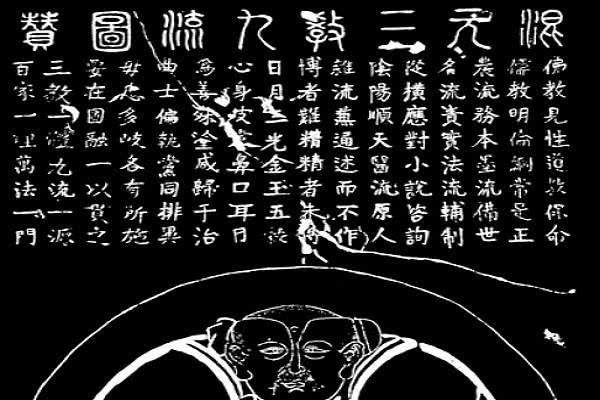 混元三教九流圖贊
佛教見性道教保命
儒教明倫綱常是正
農流務本墨流備世
名流責實法流輔制
從橫應對小說咨詢
陰陽順天醫流原人
雜流兼通述而不作
博者難精精者未博
日月三光金玉五穀
心身皮膚鼻口耳目
為善殊塗咸歸于治
曲士偏執黨同排異
毋患多岐各有所施
要在圓融一以貫之
三教一體九流一源
百家一理萬法一門